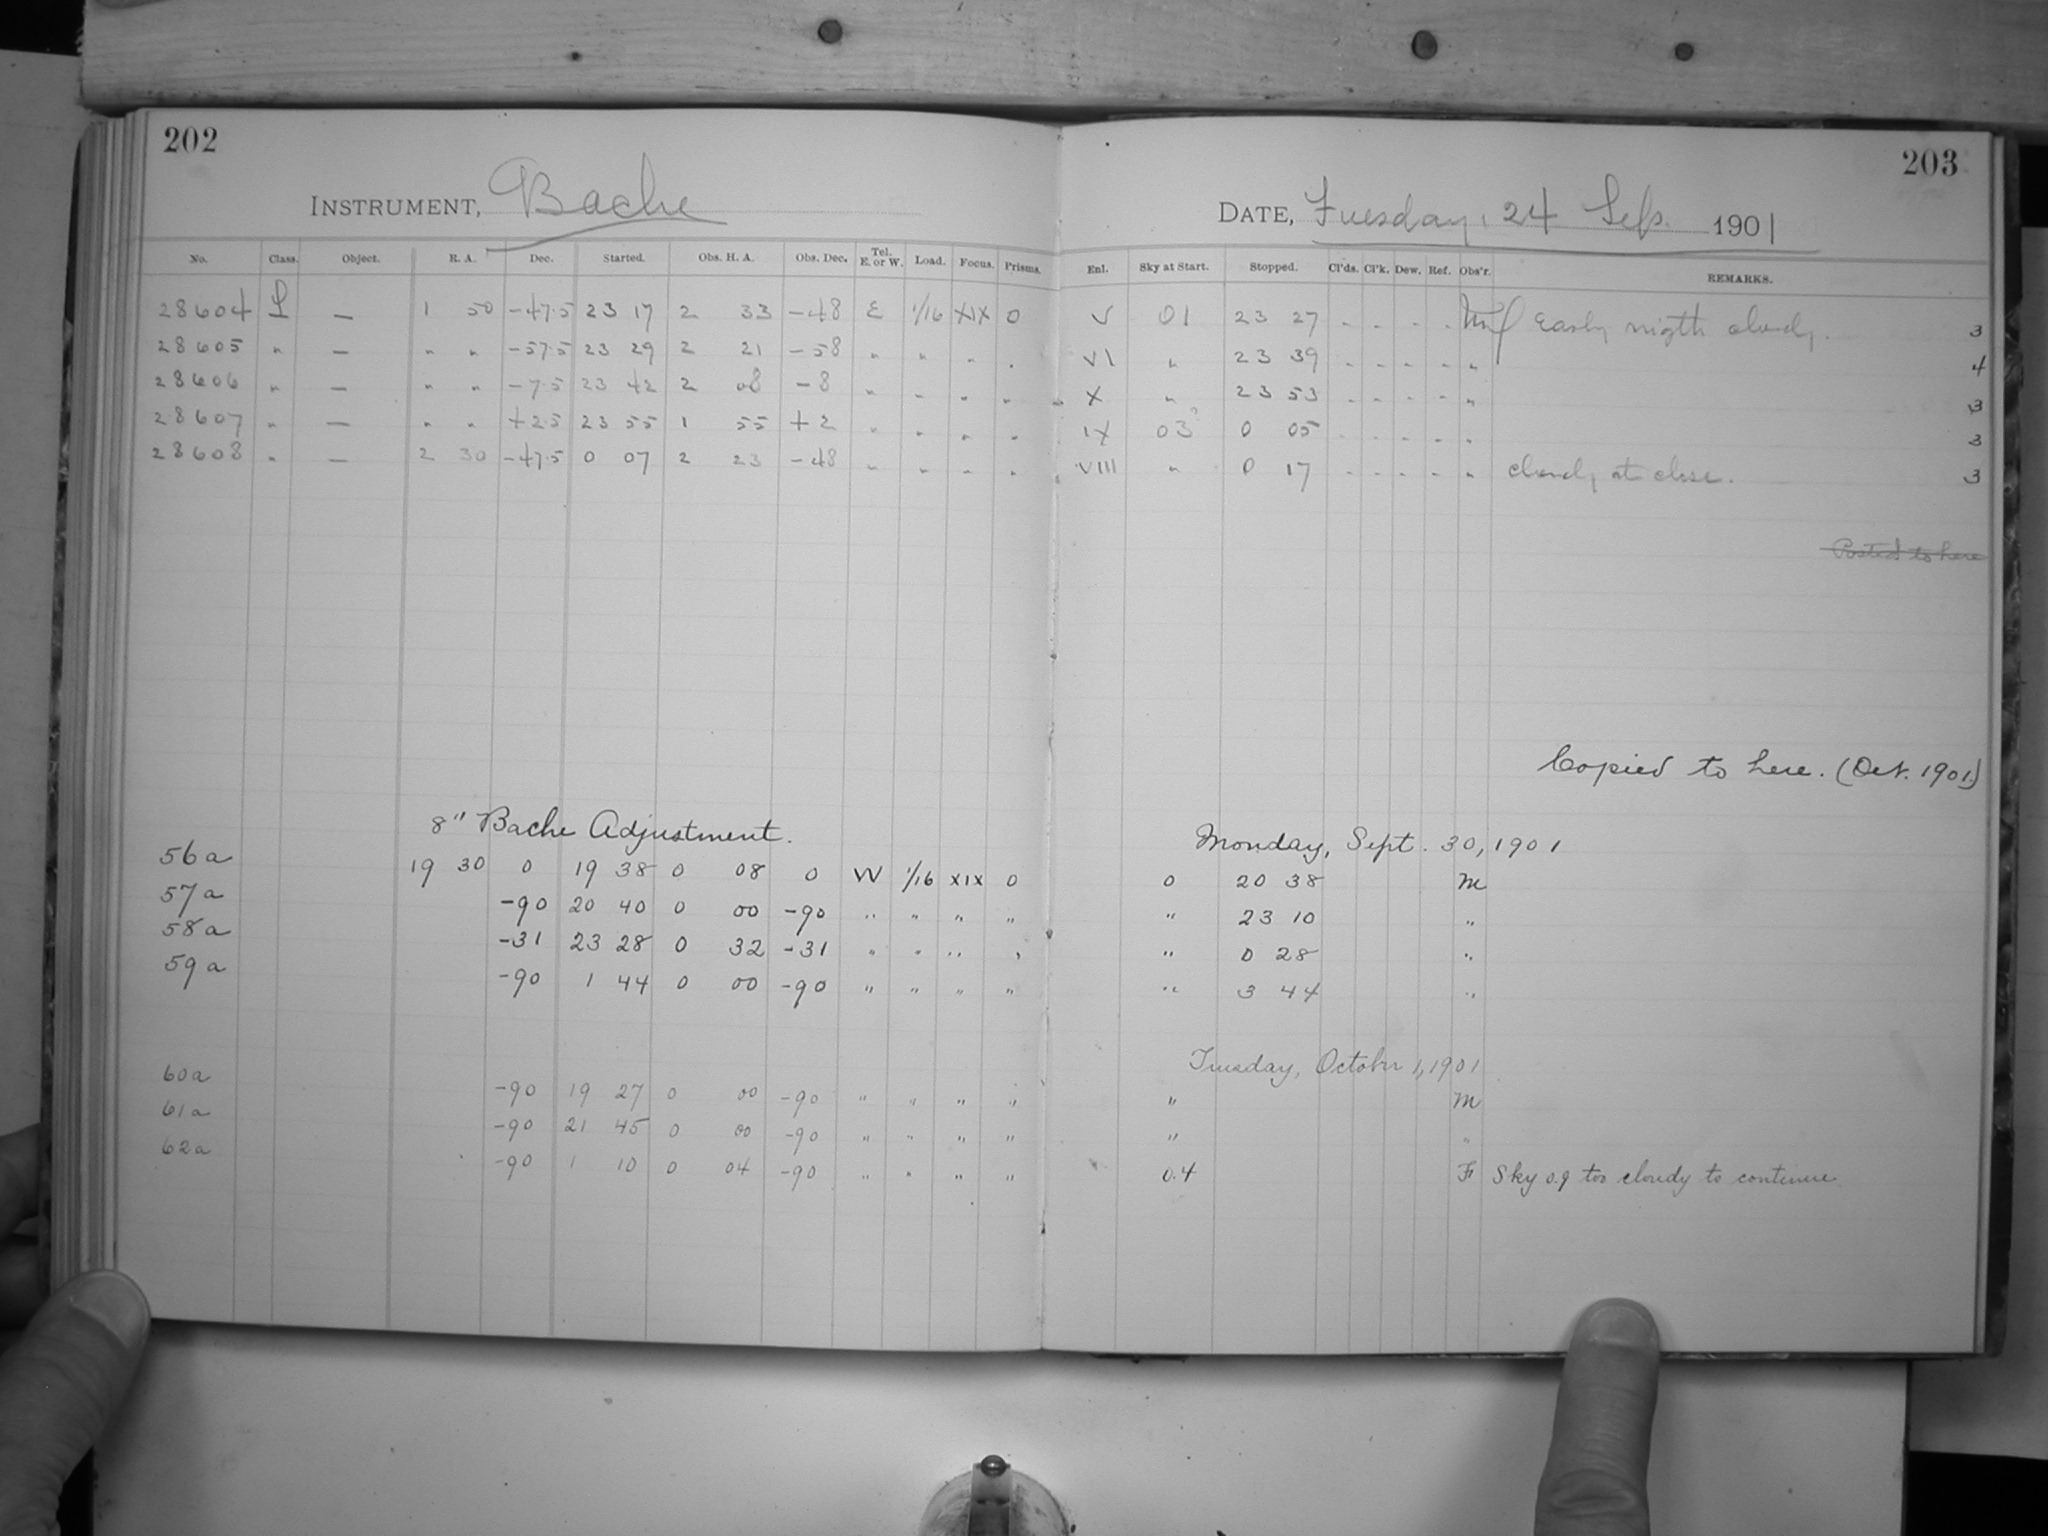 202
INSTRUMENT, Bache
No. Class. Object. R. A. Dec. Started. Obs. H. A. Obs. Dec. Tel. E. or W. Load. Focus. Prisms.
28604 L — 1 50 -47.5 23 17 2 33 -48 E 1/16 XIX 0
28605 " — " " -57.5 23 29 2 21 -58 " " " "
28606 " — " " -7.5 23 42 2 08 -8 " " " "
28607 " — " " +2.5 23 55 1 55 +2 " " " "
28608 " — 2 30 -47.5 0 07 2 23 -48 " " " "
8" Bache Adjustment.
56a 19 30 0 19 38 0 08 0 W 1/16 XIX 0
57a -90 20 40 0 00 -90 " " " "
58a -31 23 28 0 32 -31 " " " "
59a -90 1 44 0 00 -90 " " " "
60a -90 19 27 0 00 -90 " " " "
61a -90 21 45 0 00 -90 " " " "
62a -90 1 10 0 04 -90 " " " "
203
DATE, Tuesday, 24 Sep. 1901
Enl. Sky at Start. Stopped. Cl'ds. Cl'k. Dew. Ref. Obs'r. REMARKS.
V 01 23 27 - - - - Early nigth cloudy. 3
VI " 23 39 - - - - " 4
X " 23 53 - - - - " 3
IX 03 0 05 - - - - " 3
VIII " 0 17 - - - - " cloudy at close. 3
Posted to here
Copied to here. (Oct. 1901)
Monday, Sept. 30, 1901
0 20 38 M
" 23 10 "
" 0 28 "
" 3 44 "
Tuesday, October 1, 1901
" M
" "
0.4 F Sky 0.9 too cloudy to continue